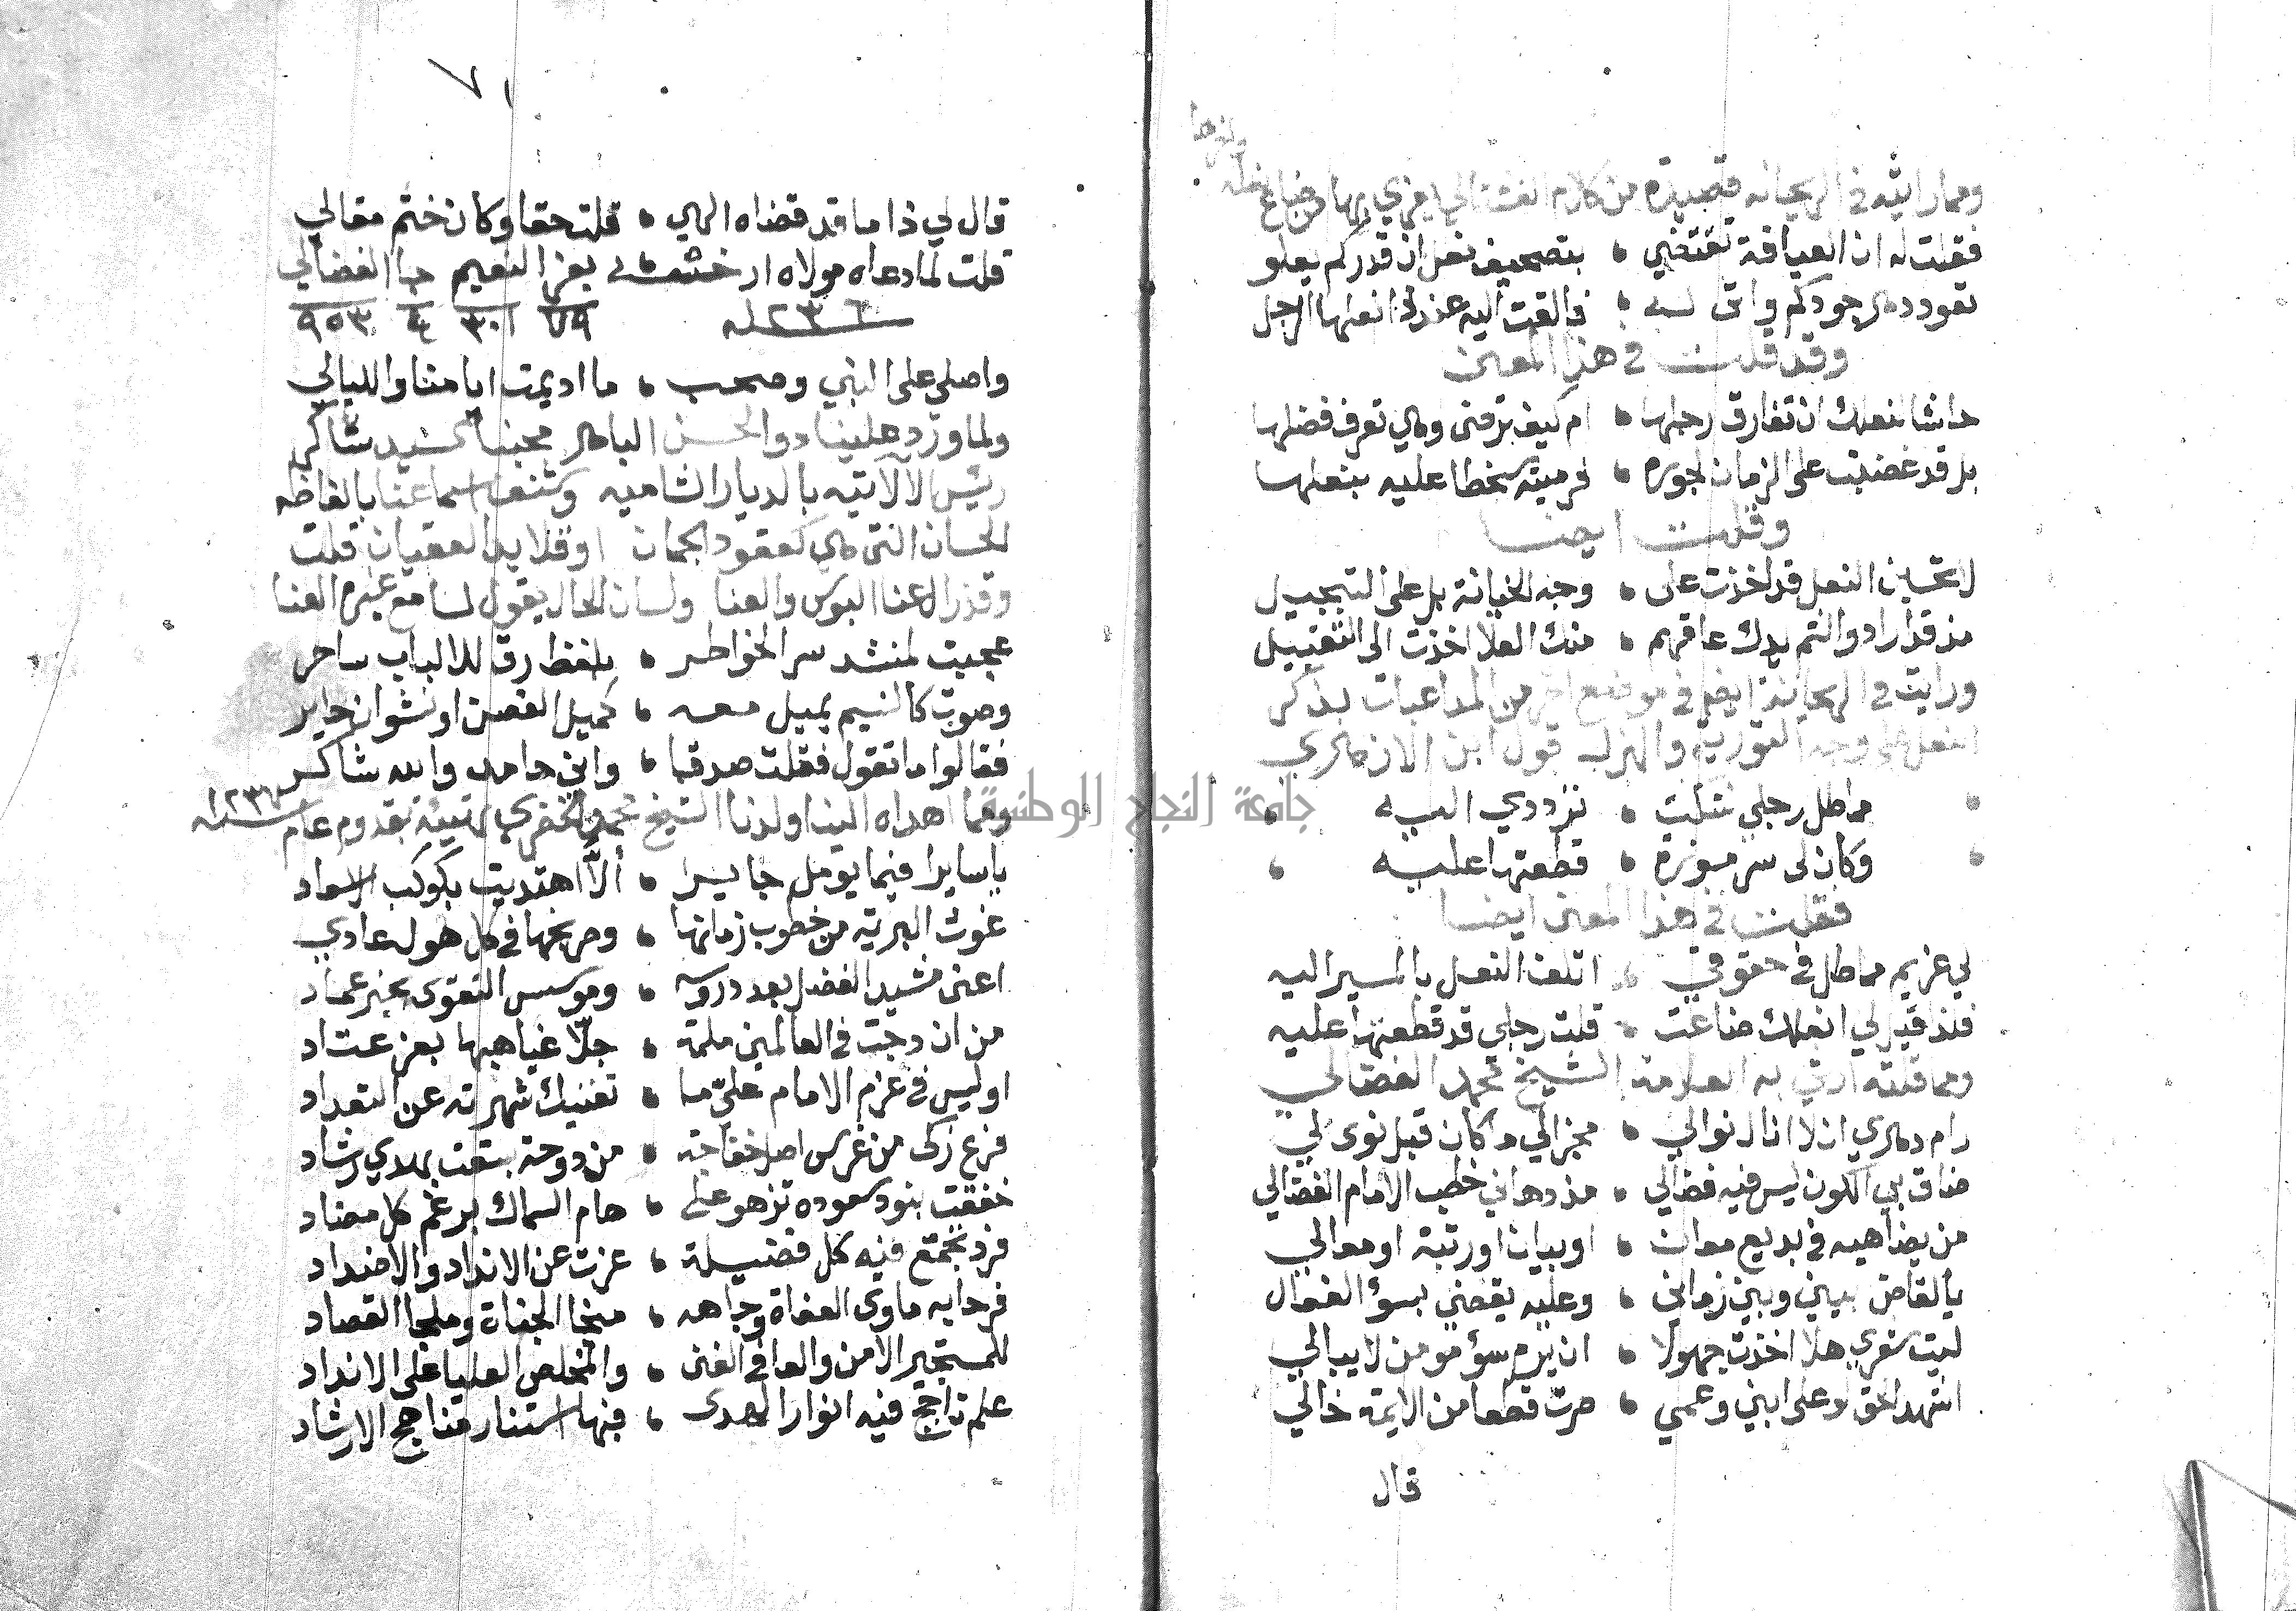 ومما رايته في الريحانه قصيدة من كلام الغشتالي يعزي بها من ضاع نعله
فقلت له ان العيافة تقتضي ، بتصحيف نعل ان قدركم يعلو
وقد قلت في هذا المعنى
حاشا لنعلك ان تفارق رجلها ، ام كيف ترضى وهي تعرف فضلها
بل قد غضبت على الزمان لجوره ، فرميته سخطا عليه بنعلها
وقلت ايضا
لا تحسبن النعل قد اخذت على ، وجه الخيانة بل على التبجيل
مذ قد ارادوا لثم يدك عاقهم ، منك العلا اخذت الى التقبيل
ورايت في الريحانة ايضا في موضع اخر من المداعبات بذكر
النعل على وجه التورية والهزل قول ابن الازهري
مماطل رجلي شكت ، ترددي اليه
وكان لي سرموزة ، قطعتها عليه
فقلت في هذا المعنى ايضا
لي غريم مماطل في حقوقي ، اتلف النعل بالمسير اليه
فلذا قيل لي انعلك ضاعت ، قلت رجلي قد قطعتها عليه
ومما قلته ارثي به العلامة الشيخ محمد الفضالي
رام دهري ان لا انال نوالي ،
ضاق بي الكون ليس فيه فضالي ، مذ دهاني خطب الامام الفضالي
من يضاهيه في بديع معان ، او بيان او رتبة او معالي
يالقاض بيني وبين زماني ، وعليه يقضي بسؤ الفعال
ليت شعري هلا اخذت جهولا ،
اشهد الحق لا على ابني وعمي ، صرت قطعا من الايمة خالي
قال
٧١
قال لي ذا ما قد قضاه الهي ، قلت حقا وكان ختم مقالي
قلت لما دعاه مولاه ارخت بعز النعيم حبا الفضالي
١٢٣٦ سنه ٧٩ ٣٠١ ٩٥٣
واصلي على النبي وصحب ، ما اديمت ايامنا والليالي
ولما ورد علينا ذو الحسن الباهر محبنا السيد شاكر
رئيس الآلاتيه بالديار الشاميه وشنف اسماعنا بالفاظه
الحسان التي هي كعقود الجمان او قلايد العقيان قلت
وقد زال عنا البوس والعنا ولسان الحال يقول لسامع غيره العنا
عجبت لمنشد سر الخواطر ، بلفظ رق للالباب ساحر
وصوت كالنسيم يميل معه ، كميل الغصن او نشوان حاير
فقالوا ما تقول فقلت صدقا ، واني حامد والله شاكر
ومما اهداه الينا ولدنا الشيخ محمد الخضري تهنيئة بقدوم عام ١٢٣٧ سنه
يا سايرا فيما يومل جايرا ، ألّا اهتديت بكوكب الاسعاد
غوث البرية من خطوب زمانها ، وصريخها في كل هول عادي
اعني مشيد الفضل بعد دروسه ، وموسس التقوى بخير عماد
من ان دجت في العالمين ملمة ، جلّا غياهبها بعز عتاد
اوليس في عزم الامام عليّ ما ، تغنيك شهرته عن التعداد
فرع زكى من غرس اصل خفاجة ، من دوحة بسقت بهدي رشاد
خفقت بنود سعوده تزهو على ، هام السماك برغم كل مضاد
فرد تجمع فيه كل فضيلة ، عزت عن الانداد والاضداد
فرحابه ماوى العفاة وجاهه ، منجا الجناة وملجا القصاد
للمستجير الامن والعافي الغنى ، والمخلص العليا على الانداد
علم تاجج فيه انوار الهدى ، فبها استنار مناهج الارشاد
جامعة النجاح الوطنية